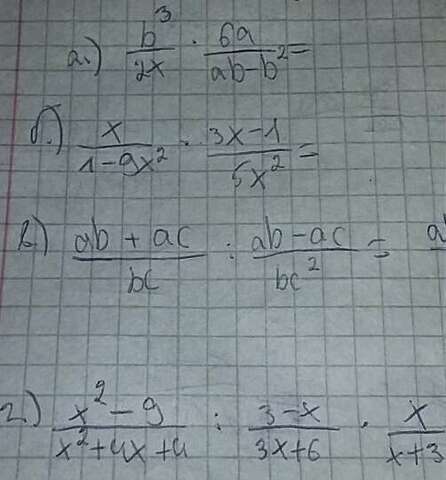 а.) b³/2x · 6a/ab-b² =
б.) x/1-9x² · 3x-1/5x² =
в) ab+ac/bc : ab-ac/bc² = a
г) x²-9/x²+4x+4 : 3-x/3x+6 · x/x+3